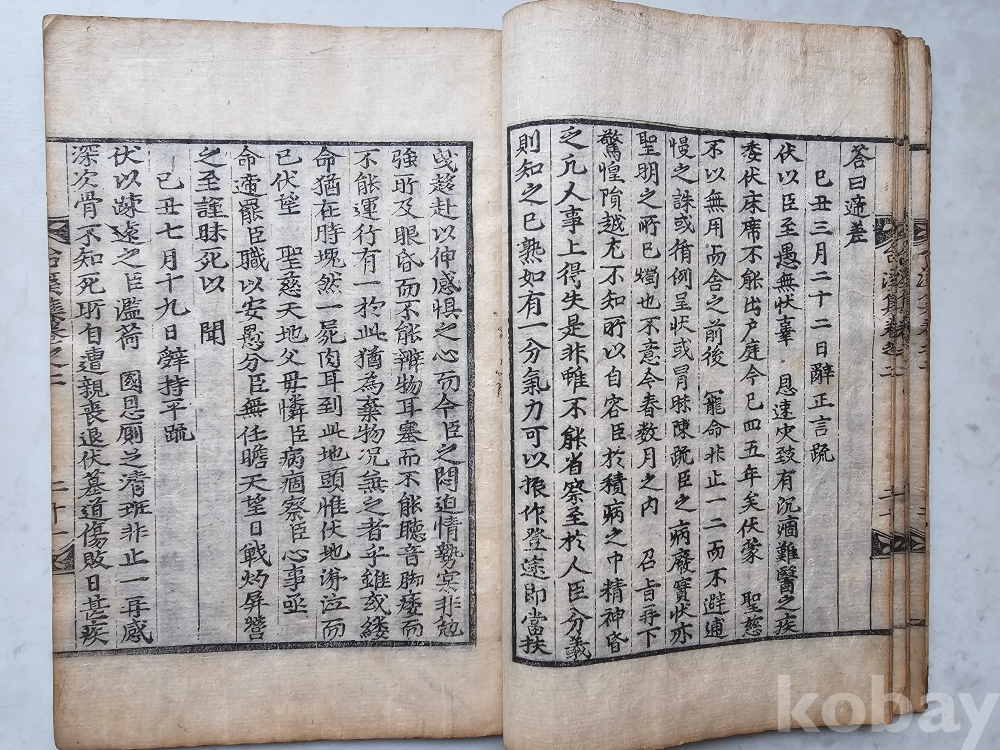 答曰遆差
己丑三月二十二日辭正言疏
伏以臣至愚無狀辜 恩速灾致有沉痼難醫之疾
委伏床席不能出户庭今已四五年矣伏蒙 聖慈
不以無用而舍之前後 寵命非止一二而不避逋
慢之誅或循例呈狀或冒昧陳疏臣之病廢實狀亦
聖明之所已燭也不意今春数月之內 召旨再下
驚惶隕越尤不知所以自容臣於積病之中精神昏
乏凡人事上得失是非雖不能省察至於人臣分義
則知之已熟如有一分氣力可以振作登途即當扶
曵趍赴以伸感惧之心而今臣之悶迫情勢實非勉
強所及眼昏而不能辨物耳塞而不能聽音脚痿而
不能運行有一於此猶為棄物况兼之者乎雖或縷
命猶在時塊然一屍肉耳到此地頭惟伏地涕泣而
已伏望 聖慈天地父母憐臣病痼察臣心事亟
命遆罷臣職以安愚分臣無任瞻天望日戰灼屏營
之至謹昧死以 聞
己丑七月十九日辭持平疏
伏以疎遠之臣濫荷 國恩厠之清班非止一再感
深次骨不知死所自遭親喪退伏墓道傷敗日甚疾
二十一
kobay